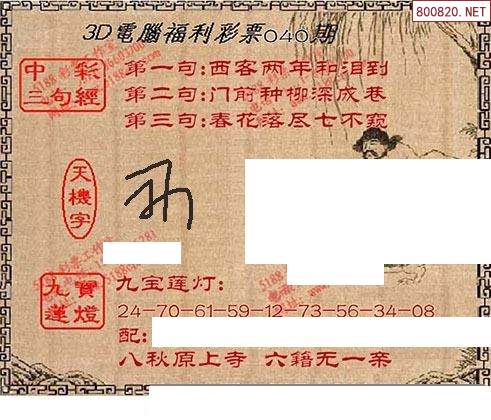 800820.NET
3D電腦福利彩票040期
中彩三句經
第一句:西客两年和泪到
第二句:门前种柳深成巷
第三句:春花落尽七不窥
天機字
九寶蓮燈
九宝莲灯:
24-70-61-59-12-73-56-34-08
配:
八秋原上寺 六籍无一亲